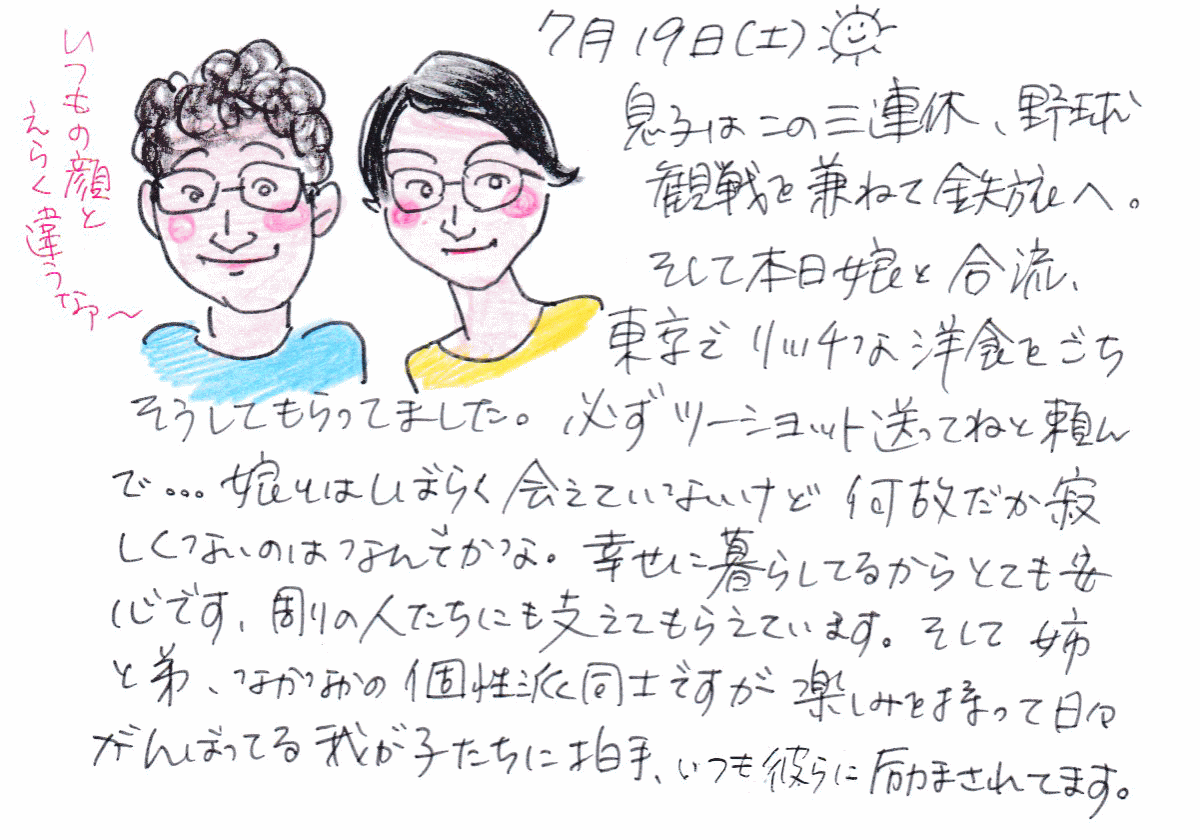 7月19日(土)
いつもの顔と
えらく違うなァ〜
息子はこの三連休、野球
観戦を兼ねて鉄旅へ。
そして本日娘と合流、
東京でリッチな洋食をごち
そうしてもらってました。必ずツーショット送ってねと頼ん
で…娘とはしばらく会えていないけど何故だか寂
しくないのはなんでかな。幸せに暮らしてるからとても安
心です、周りの人たちにも支えてもらえています。そして姉
と弟、なかなかの個性派同士ですが楽しみを持って日々
がんばってる我が子たちに拍手、いつも彼らに励まされてます。